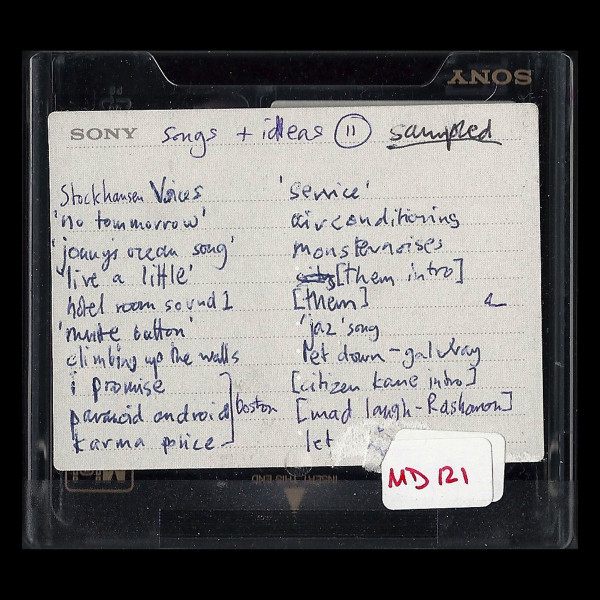 SONY
SONY songs + ideas 11 sampled
Stockhausen Voices
'no tommorrow'
'jonnys ocean song'
'live a little'
hotel room sound 1
'mute button'
climbing up the walls
i promise
paranoid android
karma police
boston
'service'
airconditioning
monsternoises
[them intro]
[them]
'jaz' song
let down - galway
[citizen kane intro]
[mad laugh - Rashamon]
let
MD 121
INSERT THIS END